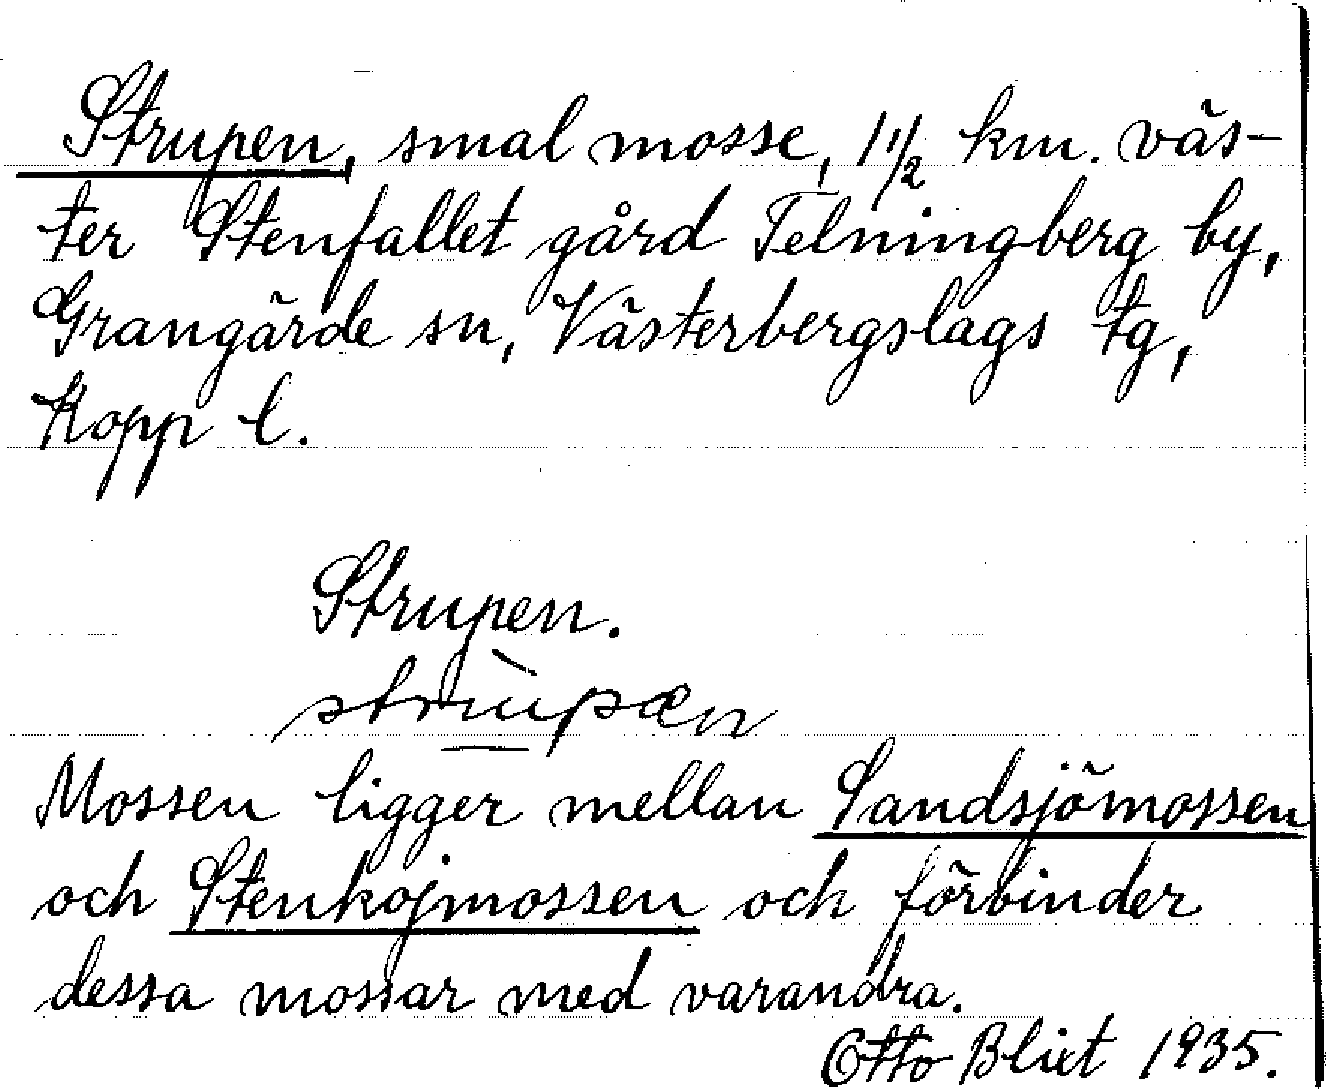 Strupen, smal mosse, 1 1/2 km. väs-
ter Stenfallet gård Telningberg by,
Grangärde sn, Västerbergslags tg,
Kopp l.
Strupen.
strùpæn
Mossen ligger mellan Sandsjömossen
och Stenkojmossen och förbinder
dessa mossar med varandra.
Otto Blixt 1935.